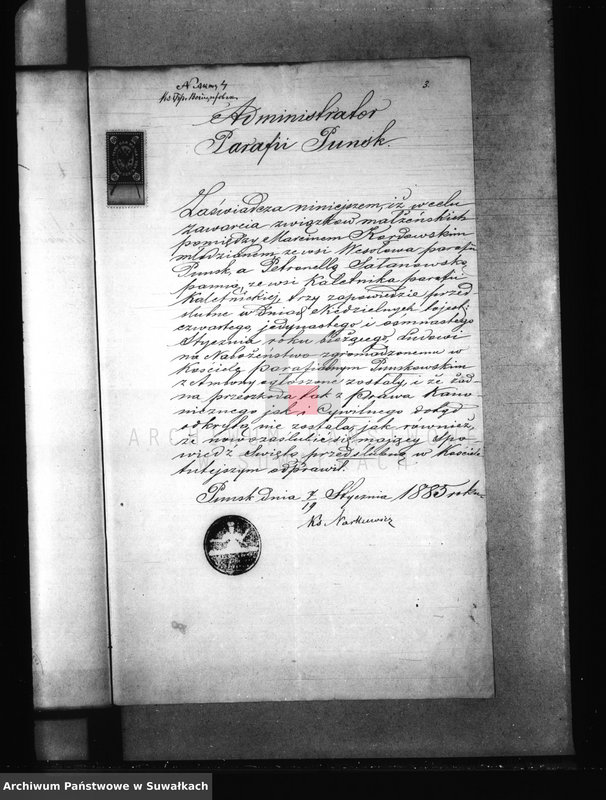 3.
Administrator
Parafii Punsk.
Zaświadcza niniejszem, iż w celu
zawarcia związków małżeńskich
pomiędzy Marcinem Kordowskim
młodzianem, ze wsi Wesołowa parafii
Punsk, a Petronellą Satanowską
panną, ze wsi Kaletnika parafii
Kaletnickiej, trzy zapowiedzie przed
ślubne w dniach Niedzielnych to jest:
czwartego, jedynastego i ośmnastego
Stycznia roku bieżącego, Ludowi
na Nabożeństwo zgromadzonemu w
Kościele parafialnym Punskowskim
z Ambony ogłoszone zostały, i że żad-
na przeszkoda tak z Prawa Kano-
nicznego jak i Cywilnego dotąd
odkrytą nie została, jak również,
że nowozaślubić się mający Spo-
wiedź Świętą przedślubną w Kościele
tutejszym odprawił.
Punsk dnia 7/19 Stycznia 1885 roku
Ks. Narkiewicz
ARCHIWUM
Archiwum Państwowe w Suwałkach